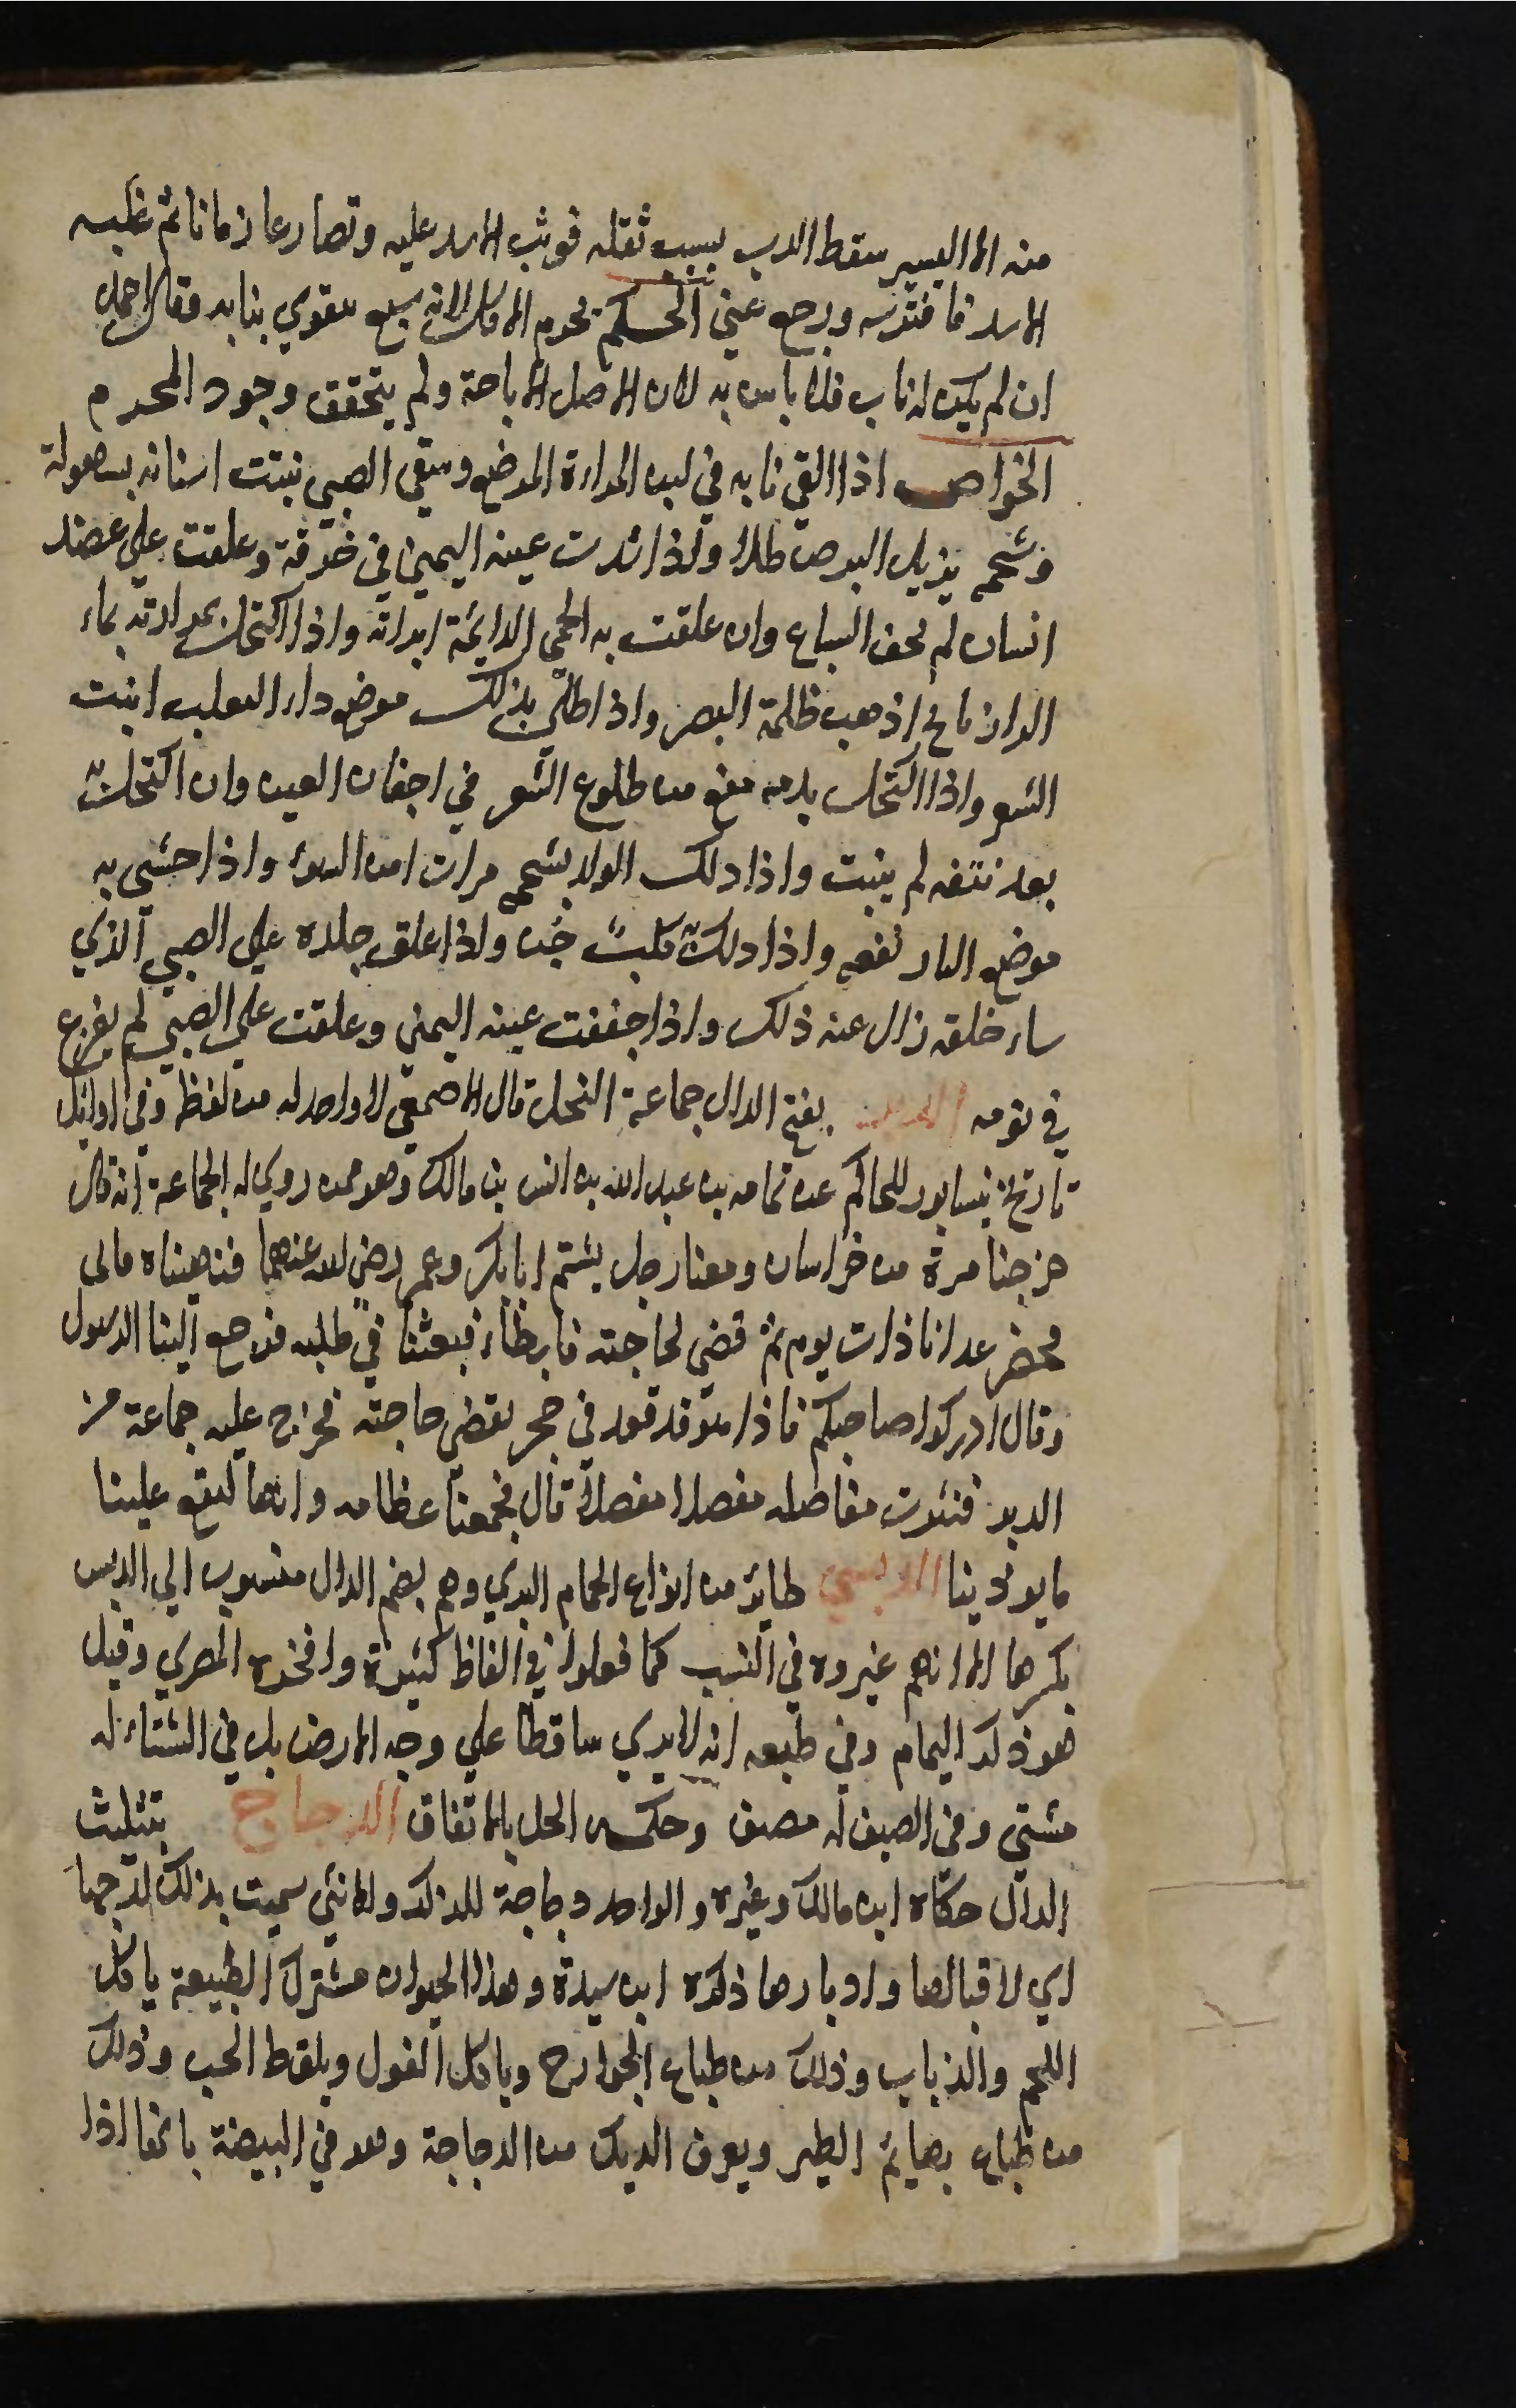 منه الا اليسير سقط الدب بسبب ثقله فوثب الاسد عليه وتصارعا زمانا ثم غلبه
الاسد فافترسه ورجع عني الحكم يحرم الاكل لانه سبع يتقوي بنابه وقال احمد
ان لم يكن له ناب فلا باس به لان الاصل الاباحة ولم يتحقق وجود المحرم
الخواص اذا القي نابه في لبن المراة المرضع وسقي الصبي نبتت اسنانه بسهولة
وشحمه يزيل البرص طلاء واذا شدت عينه اليمني في خرقة وعلقت علي عضد
انسان لم يخف السباع وان علقت به الحمي الدايمة ابراته واذا اكتحل بمرارته بماء
الرازيانج اذهب ظلمة البصر واذا طلي بذلك موضع داء الثعلب انبت
الشعر واذا اكتحل بدمه منع من طلوع الشعر في اجفان العين وان اكتحل به
بعد نتفه لم ينبت واذا دلك الولد بشحمه مرات امن السوء واذا حشي به
موضع النار نفعه واذا دلك به كلب جن واذا علق جلده علي الصبي الذي
ساء خلقه زال عنه ذلك واذا جففت عينه اليمني وعلقت علي الصبي لم يفزع
في نومه الدبر بفتح الدال جماعة النحل قال الاصمعي لا واحد له من لفظه وفي اوايل
تاريخ نيسابور للحاكم عن ثمامه بن عبد الله بن انس بن مالك وهو ممن روي له الجماعة انه قال
خرجنا مرة من خراسان ومعنا رجل يشتم ابا بكر وعمر رضي الله عنهما فنهيناه فابى
فحضر غدانا ذات يوم ثم قضى لحاجته فابطاء فبعثنا في طلبه فرجع الينا الرسول
وقال ادركوا صاحبكم فاذا هو قد قعد في جحر يقضي حاجته فخرج عليه جماعة من
الدبر فنثرت مفاصله مفصلا مفصلا قال فجمعنا عظامه وانها لتقع علينا
ما يوذينا الدبسي طاير من انواع الحمام البري وهو بضم الدال منسوب الي الدبس
بكسرها الا انهم غيروه في النسب كما فعلوا في الفاظ كثيرة وافخره المصري وقيل
هو ذكر اليمام وفي طبعه انه لا يري ساقطا علي وجه الارض بل في الشتاء له
مشتي وفي الصيف له مصيف وحكمه الحل بالاتفاق الدجاج بتثليث
الدال حكاه ابن مالك وغيره والواحد دجاجة للذكر والانثي سميت بذلك لدجها
اي لاقبالها وادبارها ذكره ابن سيدة وهذا الحيوان مشترك الطبيعة ياكل
اللحم والذباب وذلك من طباع الجوارح وياكل الفول ويلقط الحب وذلك
من طباع بهايم الطير ويعرف الديك من الدجاجة وهو في البيضة بانها اذا